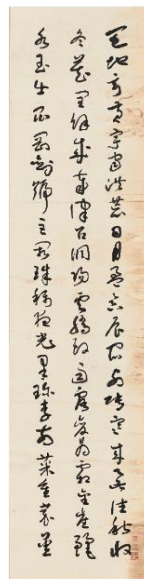 天地玄黃宇宙洪荒日月盈昃辰宿列張寒來暑往秋收
冬藏閏餘成歲律呂調陽雲騰致雨露結為霜金生麗
水玉出崑岡劍號巨闕珠稱夜光果珍李柰菜重芥薑